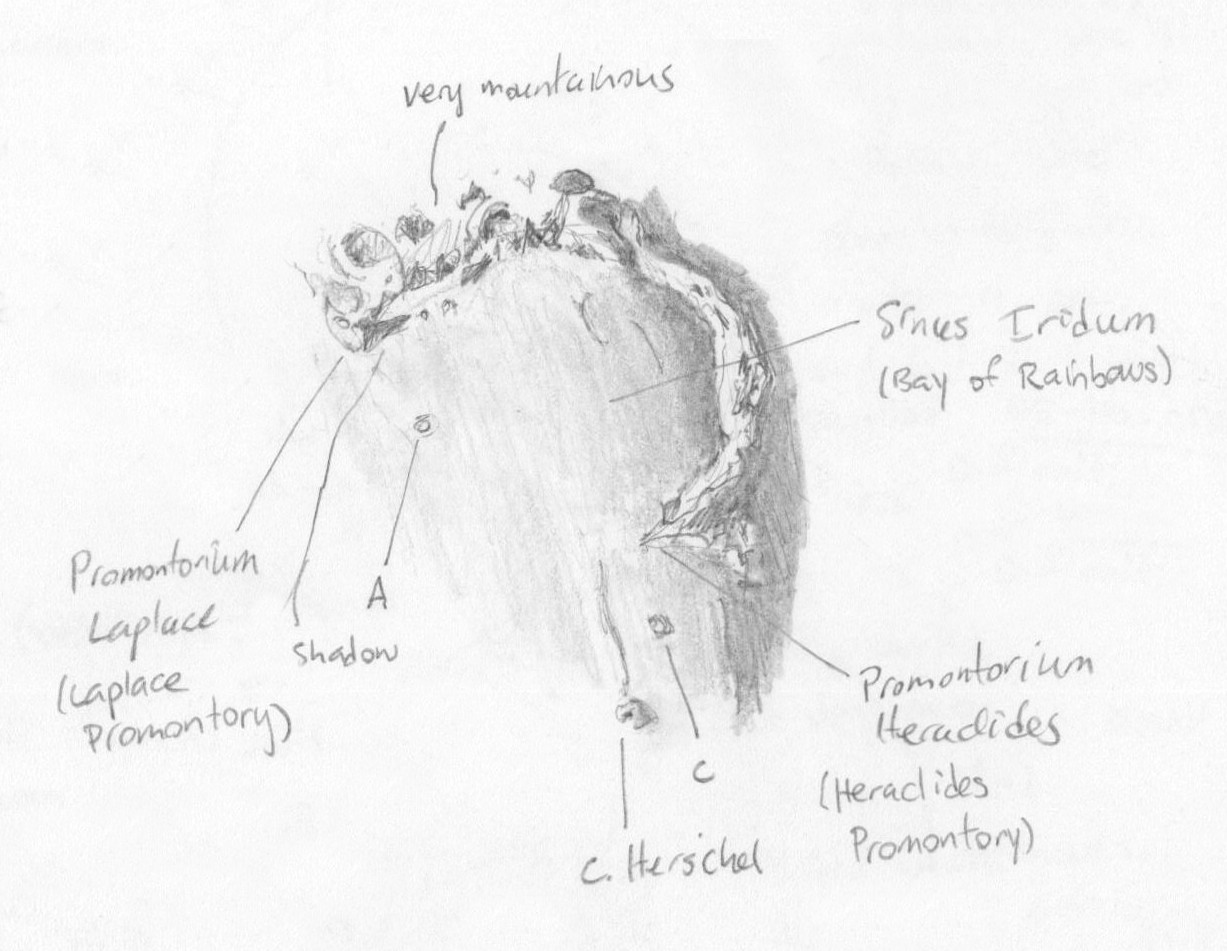 very mountainous
Sinus Iridum
(Bay of Rainbows)
Promontorium
Laplace
(Laplace
Promontory)
shadow
A
Promontorium
Heraclides
(Heraclides
Promontory)
C
C. Herschel